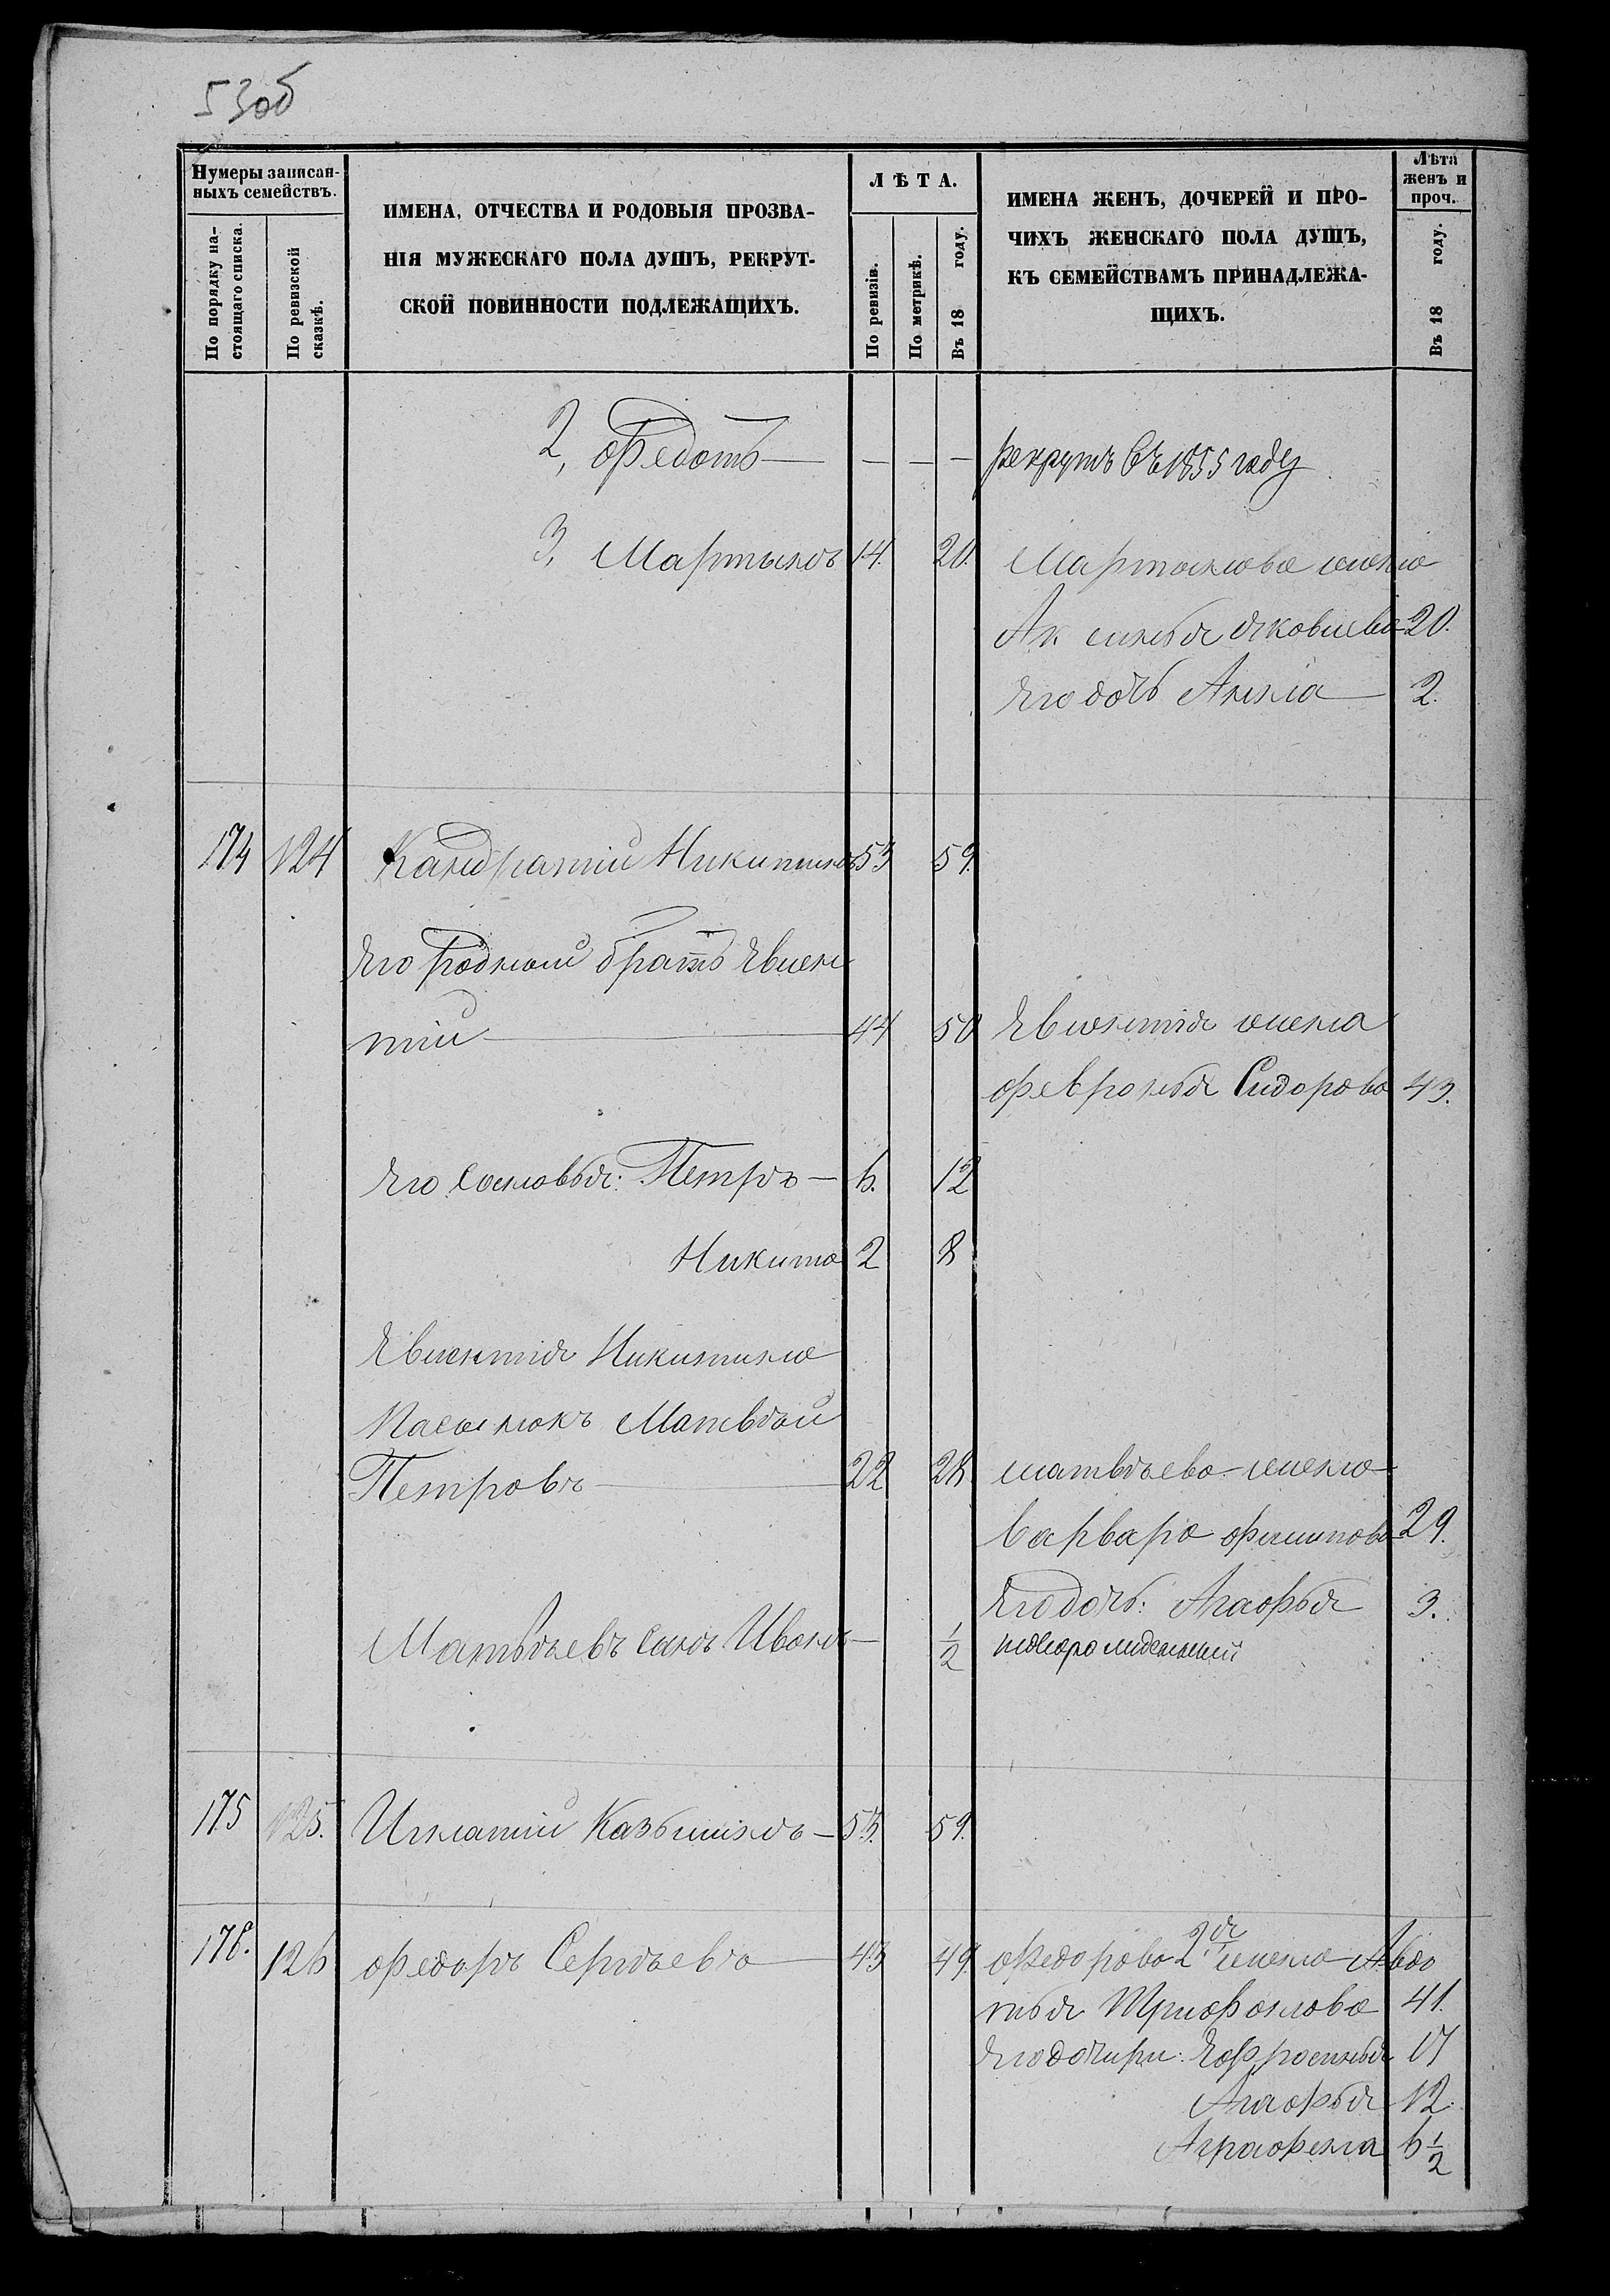 53об
Нумеры записан-
ныхъ семействъ.
По порядку на-
стоящаго списка.
По ревизской
сказкѣ.
ИМЕНА, ОТЧЕСТВА И РОДОВЫЯ ПРОЗВА-
НІЯ МУЖЕСКАГО ПОЛА ДУШЪ, РЕКРУТ-
СКОЙ ПОВИННОСТИ ПОДЛЕЖАЩИХЪ.
ЛѢТА.
По ревизіи.
По метрикѣ.
Въ 18 году.
ИМЕНА ЖЕНЪ, ДОЧЕРЕЙ И ПРО-
ЧИХЪ ЖЕНСКАГО ПОЛА ДУШЪ,
КЪ СЕМЕЙСТВАМЪ ПРИНАДЛЕЖА-
ЩИХЪ.
Лѣта
женъ и
проч.
Въ 18 году.
2, Федотъ — — — — рекрутъ въ 1855 году
3, Мартынъ 14. 20. Мартынова жена
Аксинья Яковлева 20.
Его дочь Анна — 2.
174 124 Кандратій Никитинъ 53 59.
Его родной братъ Евлен
тій — 44 50 Евлентія жена
Февронья Сидорова 43.
Его Сыновья: Петръ — 6. 12
Никита 2 8
Евлентія Никитина
Пасынокъ Матвѣй
Петровъ — 22 28 Матвѣева жена
Варвара Филипова 29.
Его дочь: Агафья 3.
Матвѣевъ Сынъ Иванъ — 1/2 новорожденный
175 125. Игнатій Казьминъ — 53. 59.
176. 126 Федоръ Сергѣевъ — 43 49 Федорова 2я жена Авдо
тья Трифонова 41.
Его дочери: Ефросинья 17
Агафья 12.
Аграфена 6 1/2